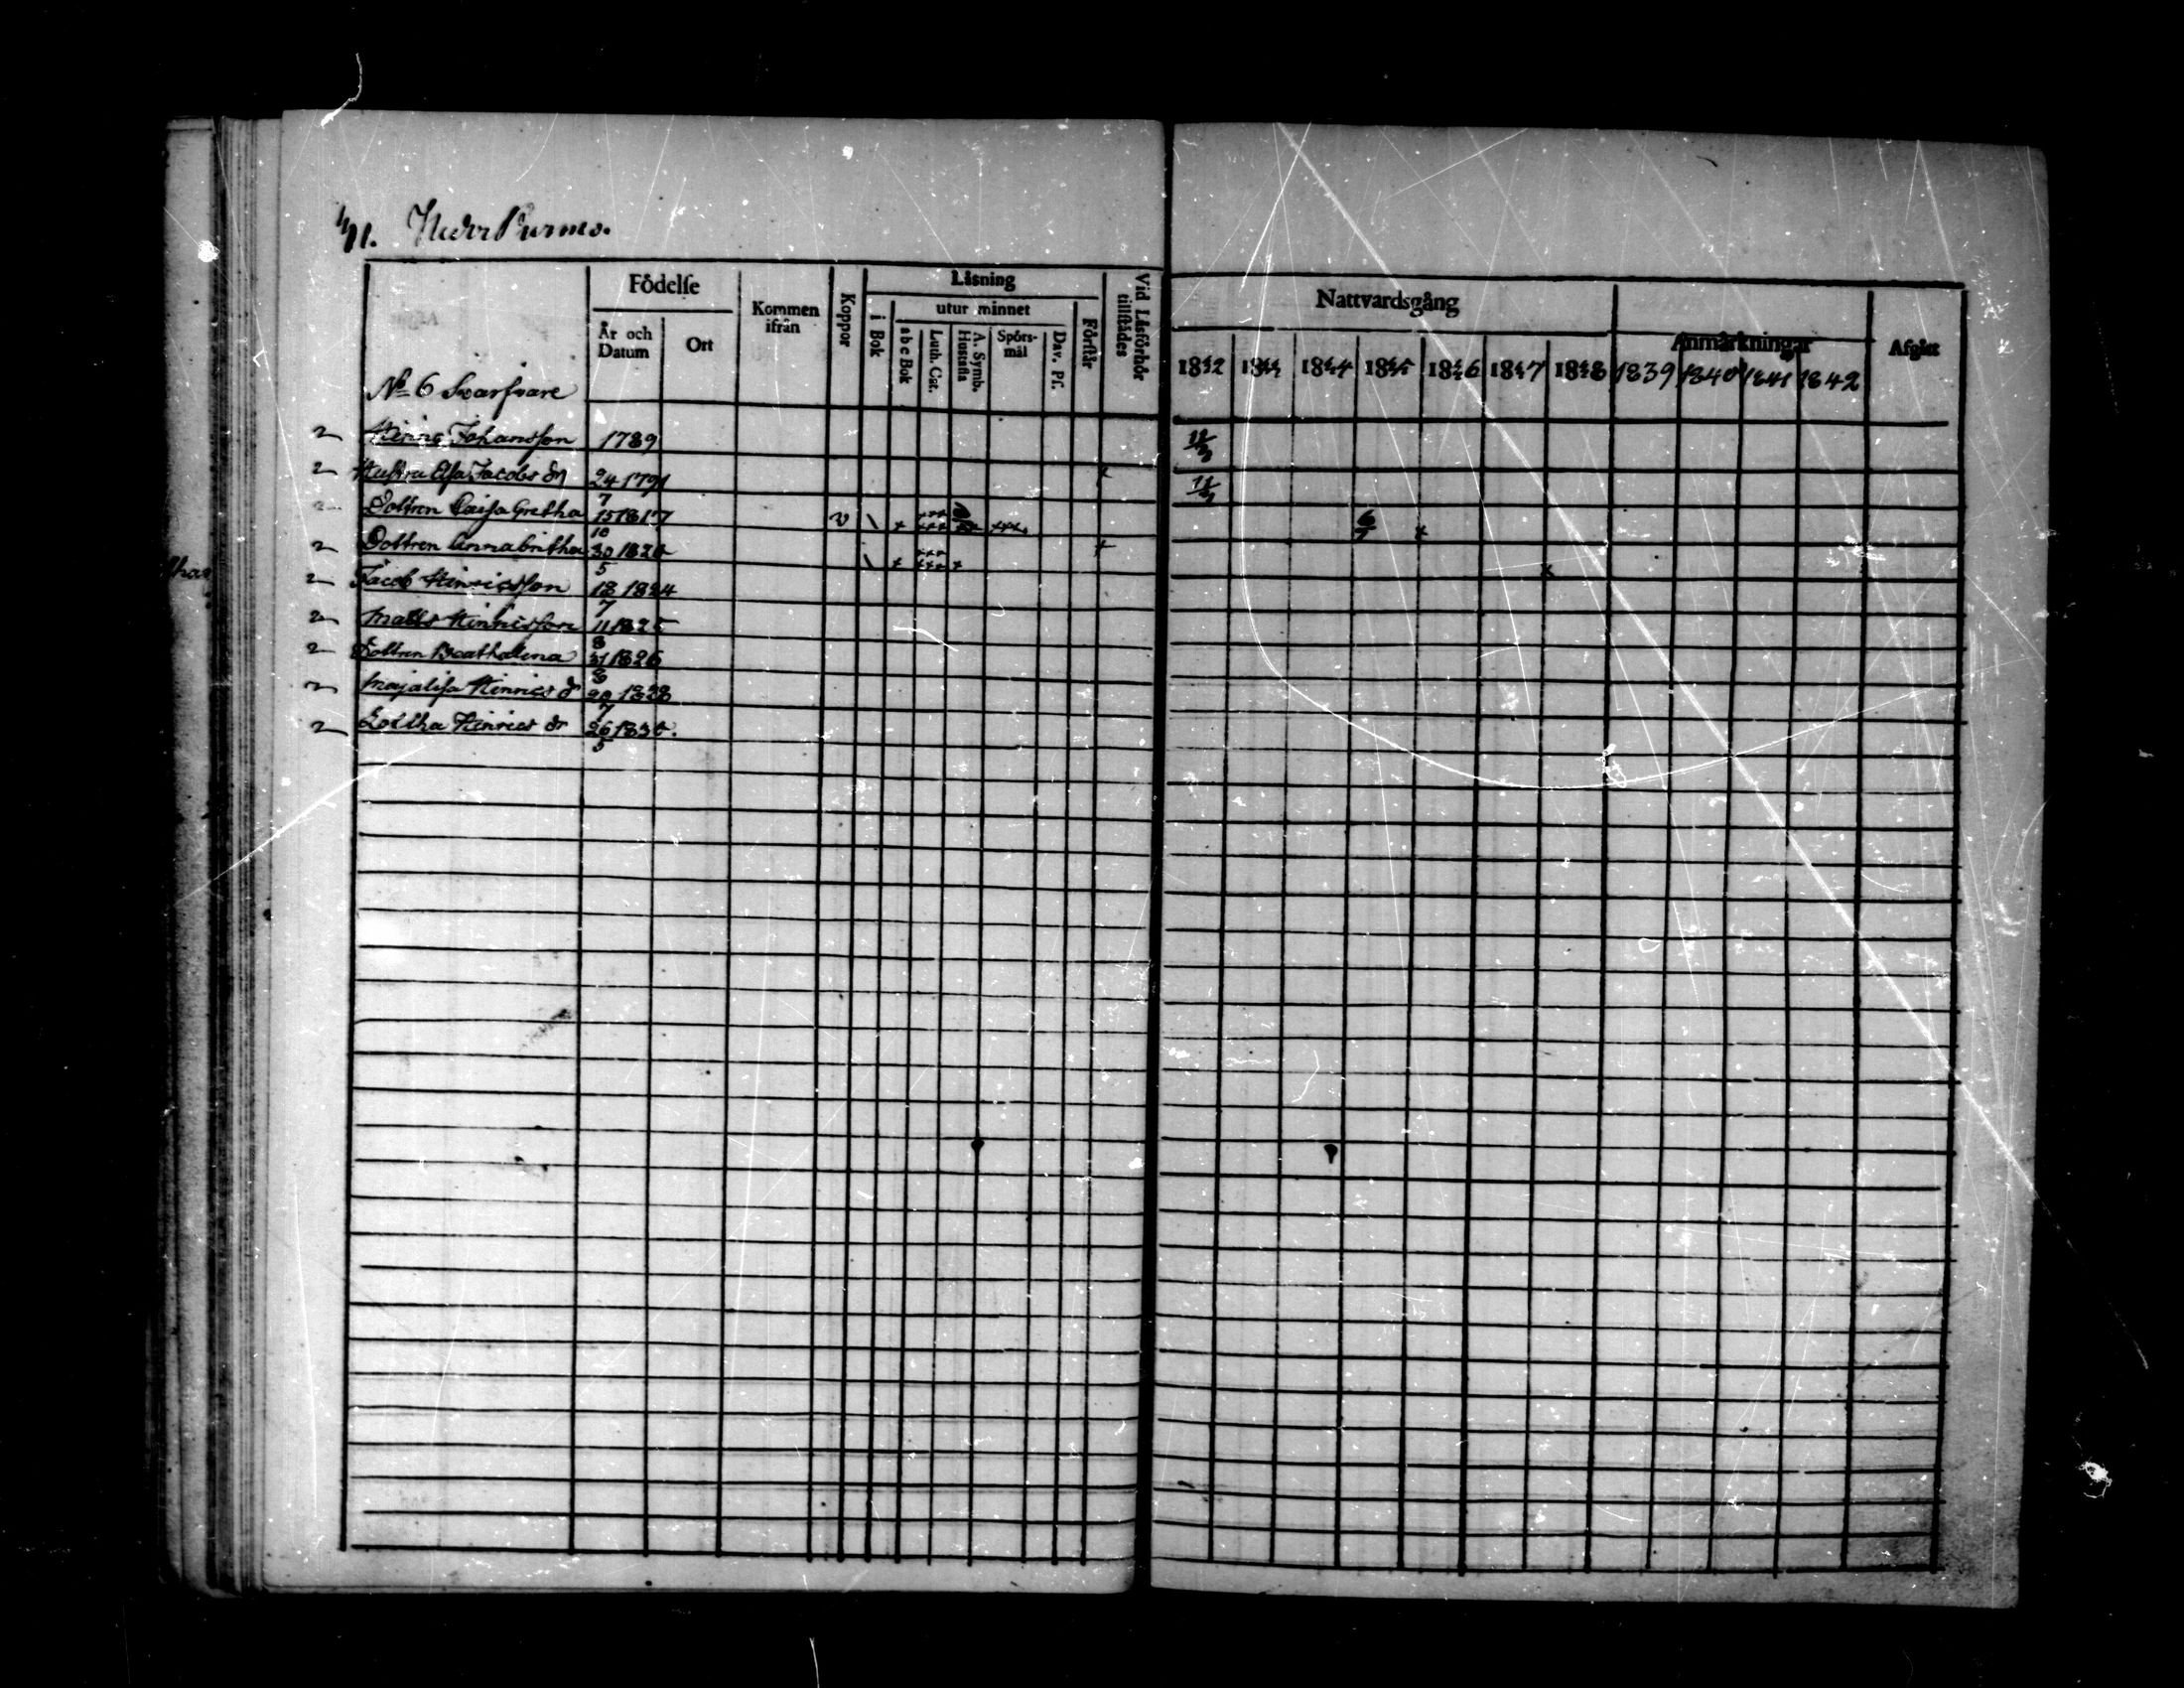 Neder Purmo.
Födelse
Kommen ifrån
Koppor
Läsning
Vid Läsförhör tillstädes
Nattvardsgång
Anmärkningar
Afgått
År och Datum
Ort
i Bok
utur minnet
Förstår
a b c Bok
Luth. Cat.
A. Symb. Hustafla
Spörs-mål
Dav. Ps.
1842 1844 1845 1846 1847 1848 1839 1840 1841 1842
No 6 Svarfvare
2 Hinric Johansson 1789
2 Hustru Elsa Jacobs dr 24/7 1791
2 Dottren Caisa Gretha 15/10 1817 v 6/7
2 Dottren Annabritha 30/5 1820
2 Jacob Hinricsson 18/7 1824
2 Matts Hinricsson 11/8 1825
2 Dottren Beathalena 31/8 1826
2 Majalisa Hinrics dr 20/7 1828
2 Lovisa Hinrics dr 26/5 1830.